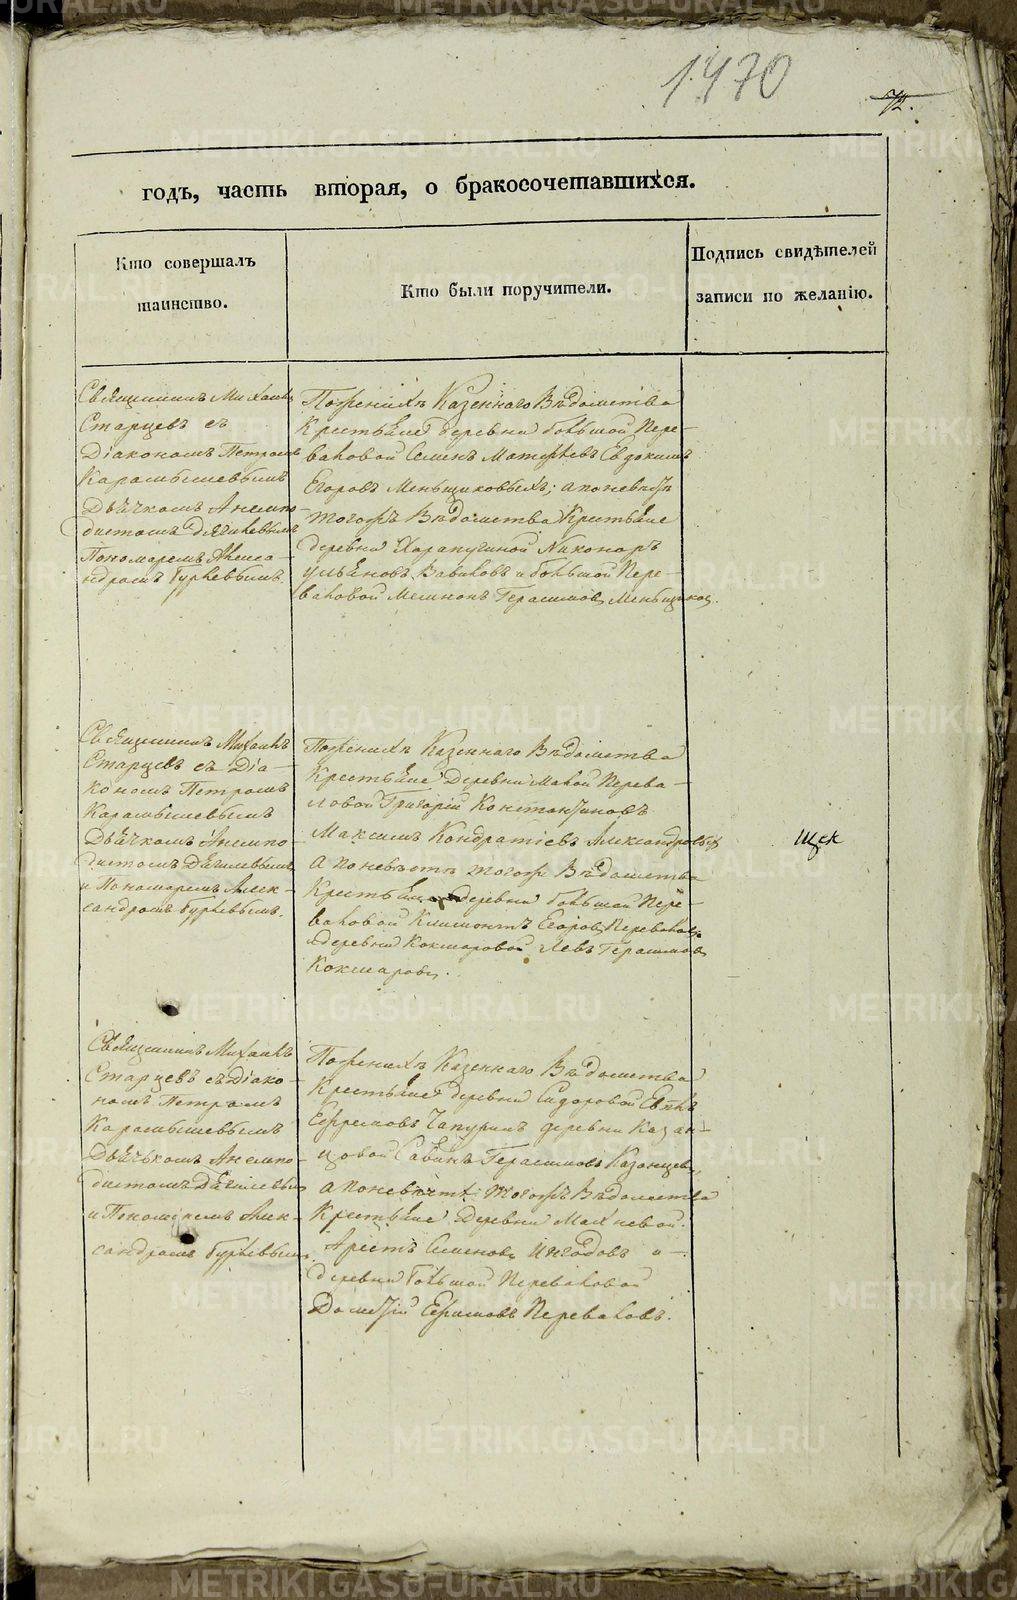 1470
72.
годъ, часть вторая, о бракосочетавшихся.
Кто совершалъ
таинство.
Кто были поручители.
Подпись свидѣтелей
записи по желанію.
Священникъ Михаилъ
Старцевъ съ
Діакономъ Петромъ
Карамышевымъ
Дьячкомъ
Пономаремъ Алекса-
ндромъ
По женихѣ Казеннаго Вѣдомства
Крестьяне деревни большой Пере-
валовой Семенъ Матфѣевъ Евдокимъ
Егоровъ Меньщиковыхъ; а по невѣстѣ
тогожъ Вѣдомства Крестьяне
деревни Никоноръ
Ульяновъ Вавиловъ и большой Пере-
валовой Мемнонъ Герасимовъ Меньщиков
Священникъ Михаилъ
Старцевъ съ Діа-
кономъ Петромъ
Карамышевымъ
Дьячкомъ
и Пономаремъ Алек-
сандромъ
По женихѣ Казеннаго Вѣдомства
Крестьяне Деревни малой Перева-
ловой Григорій Константиновъ
Максимъ Кондратіевъ Александровых
а по невѣстѣ тогож Вѣдомства
деревни большой Пере-
валовой Климонтъ Егоровъ Переваловъ
деревни Кокшаровой Левъ Герасимовъ
Кокшаровъ.
Щек
Священникъ Михаилъ
Старцевъ съ Діако-
номъ Петромъ
Карамышевымъ
Дьячькомъ
и Пономаремъ Алек-
сандромъ
По женихѣ Казеннаго Вѣдомства
Крестьяне деревни Сидоровой
Ефремовъ Чапуринъ деревни Казан-
цовой Савинъ Герасимовъ Казанцевъ
а по невѣстѣ тогожъ Вѣдомства
Крестьяне Деревни Махневой
Семеновъ и
деревни Большой Переваловой
Дометій Ефимовъ Переваловъ.
METRIKI.GASO-URAL.RU